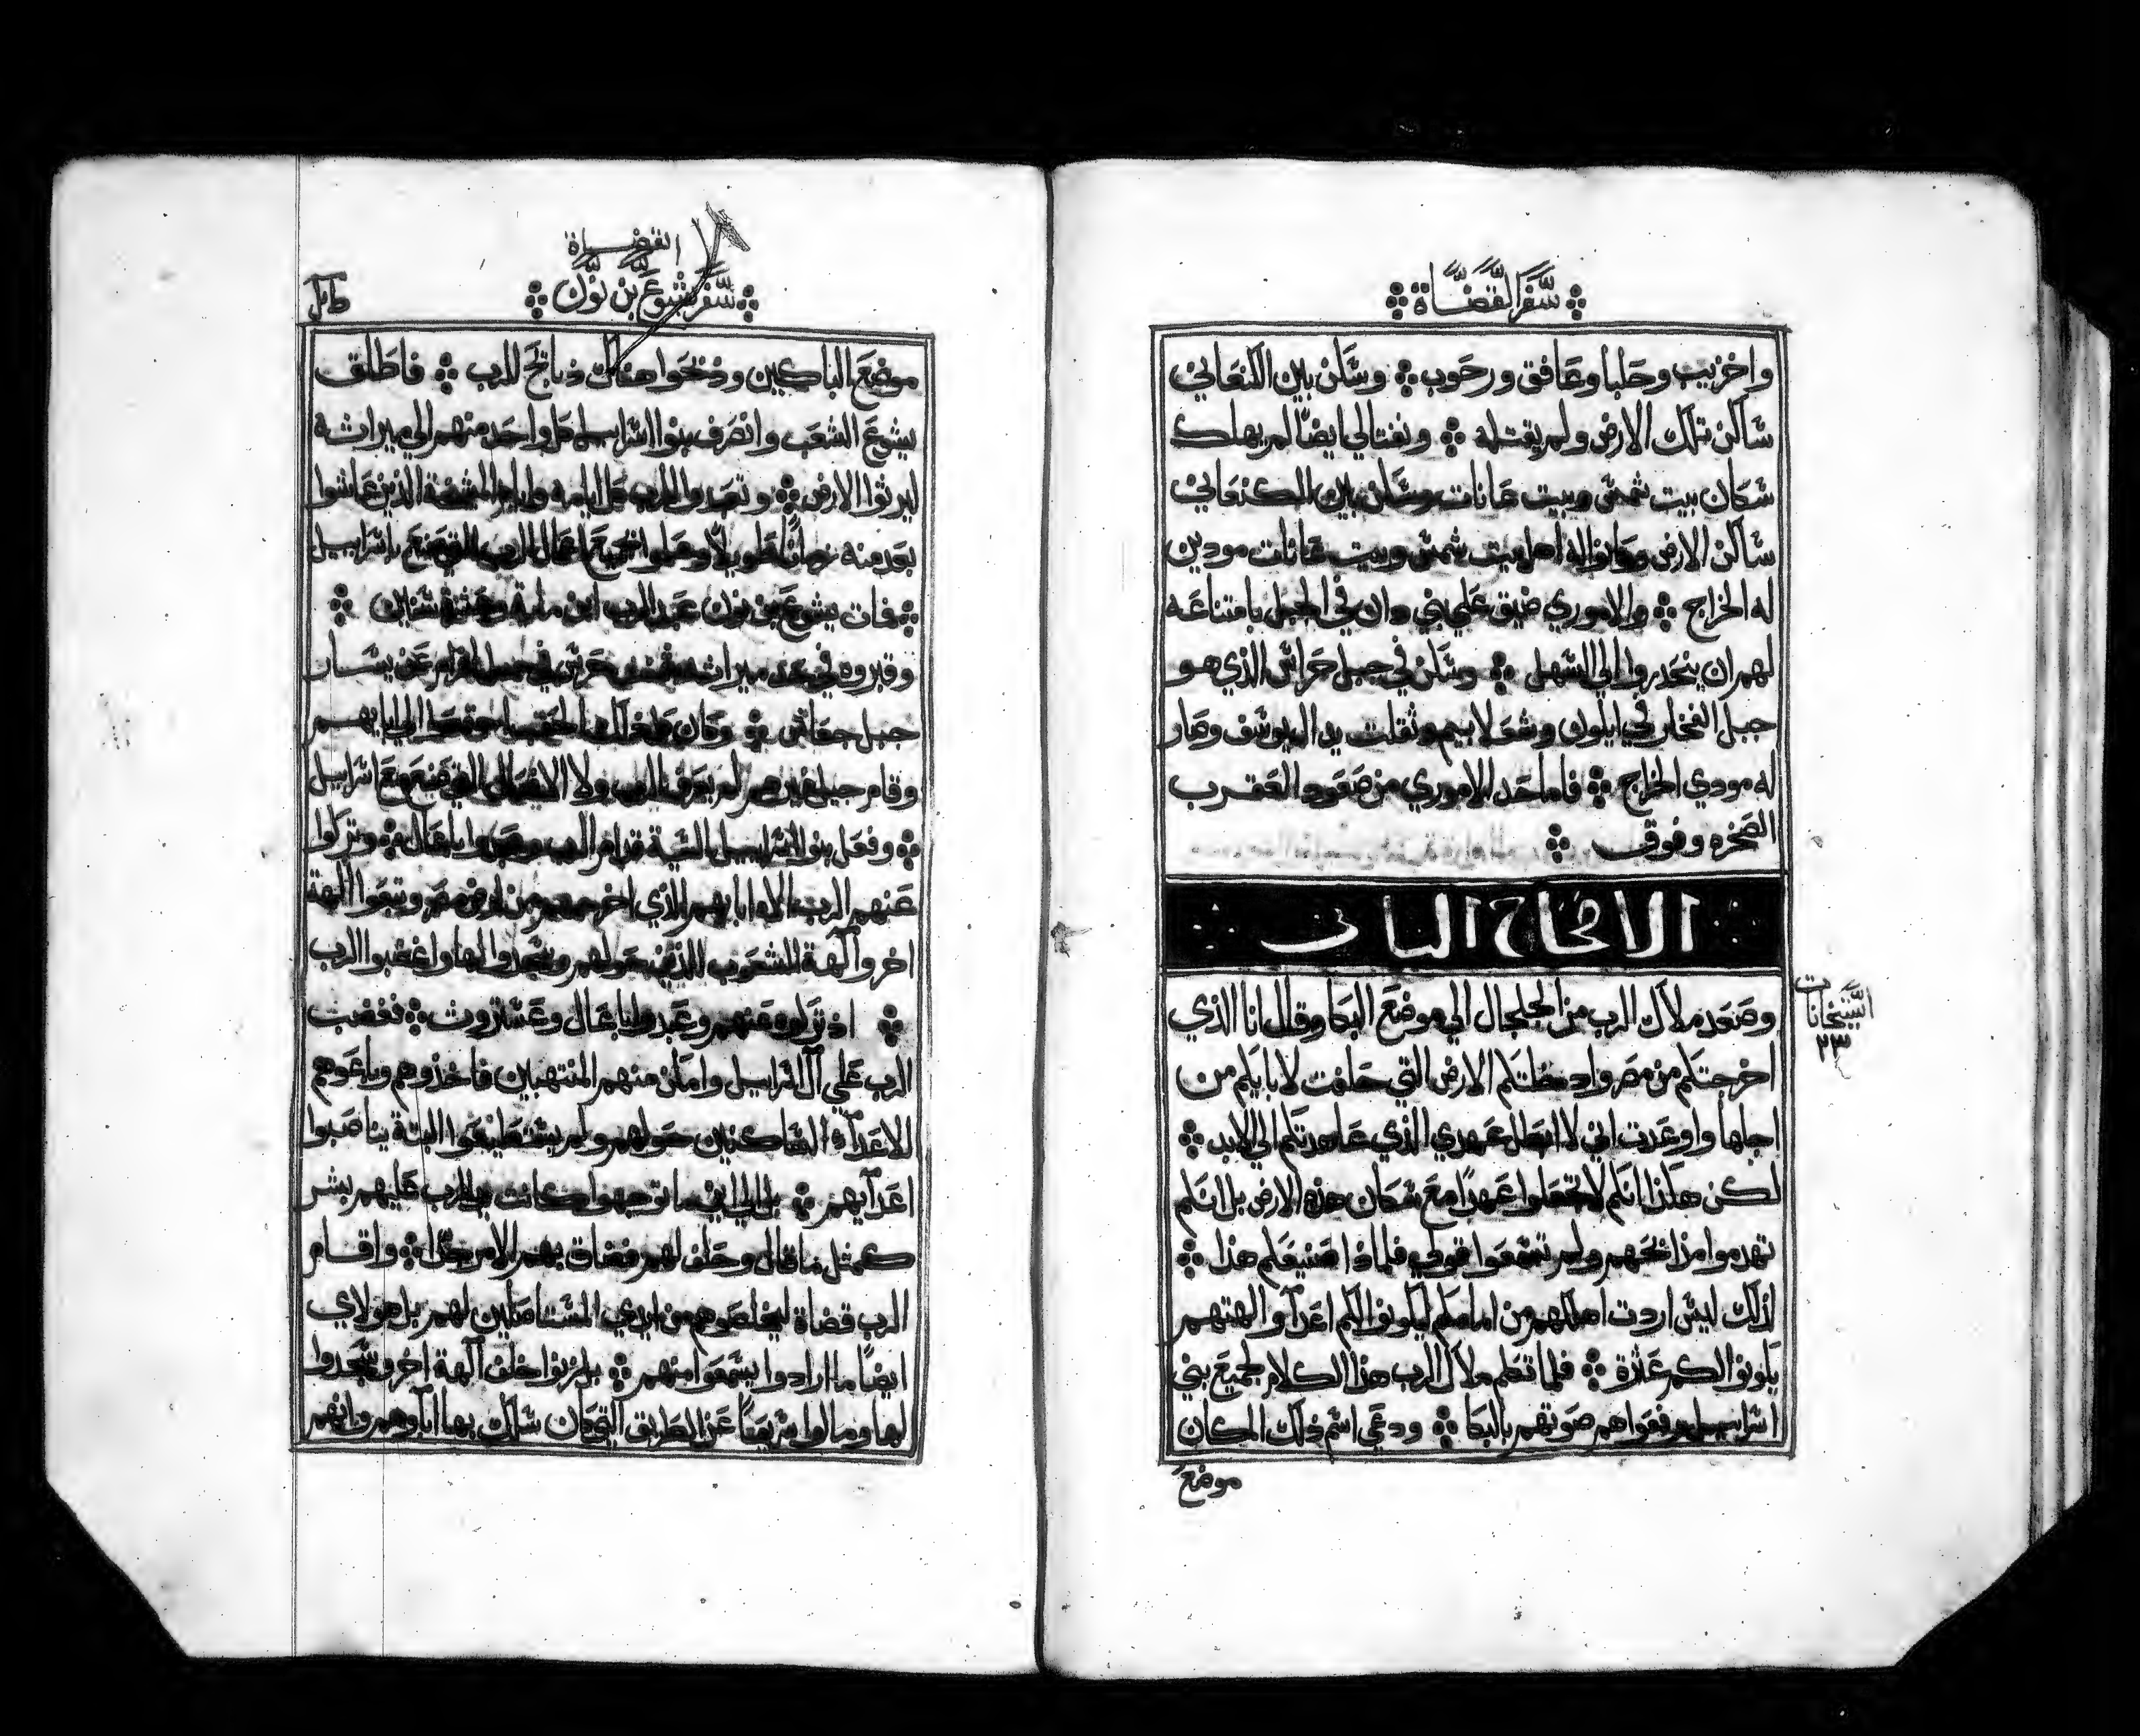 سفر القضاة
واخزيب وحلبا وعافق ورحوب وسكن بين الكنعاني
ساكن تلك الارض ولم يقتله ونفتالي ايضا لم يهلك
سكان بيت شمس وبيت عانات وسكن بين الكنعاني
ساكن الارض وصاروا له اهل بيت شمس وبيت عانات مودين
له الخراج والاموري ضيق علي بني دان في الجبل بامتناعه
لهم ان ينحدروا الي السهل وسكن في جبل حراش الذي هو
جبل الفخار في ايلون وشعلابيم وثقلت يد ال يوسف وصار
له مودي الخراج فاما حد الاموري من صعود العقرب
الصخره وفوق
الاصحاح الثاني
وصعد ملاك الرب من الجلجال الي موضع البكا وقال انا الذي
اخرجتكم من مصر وادخلتكم الارض التي حلفت لابايكم من
اجلها واوعدت اني لا ابطل عهدي الذي عاهدتكم الي الابد
لكن هكذا انكم لا تجعلوا عهدا مع سكان هذه الارض بل انكم
تهدموا مذابحهم ولم تسمعوا قولي فلماذا صنيعكم هذا
لذلك ليس اردت اهلكهم من امامكم ليكونوا لكم اعدآ والهتهم
يكونوا لكم عثرة فلما تكلم ملاك الرب هذا الكلام لجميع بني
اسراييل رفعوا هم صوتهم بالبكا ودعي اسم ذلك المكان
موضع
السنجانات
٢٣
القضاة
سفر يشوع بن نون
موضع الباكيين وذبحوا هناك ذبايح للرب فاطلق
يشوع الشعب وانصرف بنوا اسراييل كل واحد منهم الي ميراثه
ليرثوا الارض وتعبدوا للرب كل ايامه وايام المشيخة الذين عاشوا
بعد منه زمانا طويلا وعلموا جميع اعمال الرب التي صنع باسراييل
فمات يشوع بن نون عبد الرب ابن ماية وعشرة سنين
وقبروه في حد ميراثه حرس في جبل افرام عن يسار
جبل جعاش وكان كل ذلك الحقب اجتمعوا الي ابايهم
وقام جيل غيرهم لم يعرف الرب ولا الافعال التي صنع مع اسراييل
وفعل بنوا اسراييل السية قدام الرب وعبدوا باعال وتركوا
عنهم الرب الاه ابايهم الذي اخرجهم من ارض مصر وتبعوا الهة
اخر وآلهة الشعوب الذين حولهم وسجدوا لها واغضبوا الرب
اذ تركوه عنهم وعبدوا باعال وعستروث فغضب
الرب علي آل اسراييل وامكن منهم المنتهبين فاخذوهم وباعوهم
للاعدآء الساكنين حولهم ولم يستطيعوا البتة يناصبوا
اعدآيهم بل الي اين ما توجهوا كانت يد الرب عليهم بشر
كمثل ما قال وحلف لهم فضاق بهم الامر جدا واقام
الرب قضاة ليخلصوهم من ايدي المستاصلين لهم بل هولاي
ايضا ما ارادوا يسمعوا منهم بل زنوا خلف آلهة اخر وسجدوا
لها ومالوا سريعا عن الطريق التي كان سلك بها اباوهم وانهم